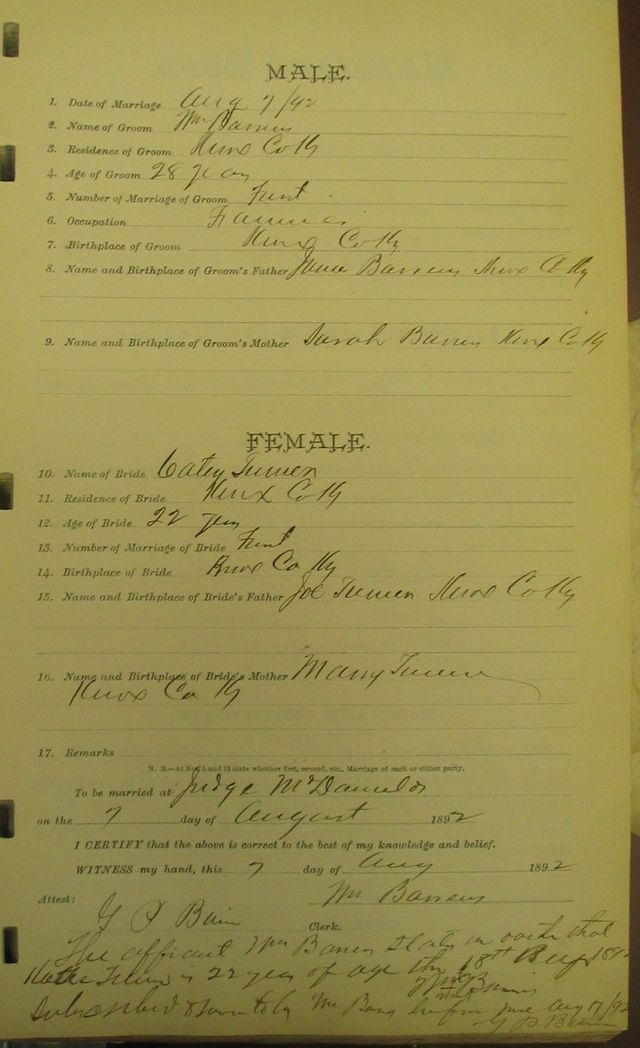 MALE.
1. Date of Marriage Aug 7/92
2. Name of Groom Wm Barren
3. Residence of Groom Knox Co Ky
4. Age of Groom 28 years
5. Number of Marriage of Groom First
6. Occupation Farmer
7. Birthplace of Groom Knox Co Ky
8. Name and Birthplace of Groom's Father Barren Knox Co Ky
9. Name and Birthplace of Groom's Mother Sarah Barren Knox Co Ky
FEMALE.
10. Name of Bride Catey Turner
11. Residence of Bride Knox Co Ky
12. Age of Bride 22 years
13. Number of Marriage of Bride First
14. Birthplace of Bride Knox Co Ky
15. Name and Birthplace of Bride's Father Joe Turner Knox Co Ky
16. Name and Birthplace of Bride's Mother Mary Turner
Knox Co Ky
17. Remarks
N. B.—At Nos. 5 and 13 state whether first, second, etc., Marriage of each or either party.
To be married at Judge McDaniels
on the 7 day of August 1892
I CERTIFY that the above is correct to the best of my knowledge and belief.
WITNESS my hand, this 7 day of Aug 1892
Wm Barren
Attest:
G P Bain Clerk.
The affiant Wm Barren states on oath that
Turner is 22 years of age the 18th 1892
Subscribed & sworn to by Wm before me Aug /92